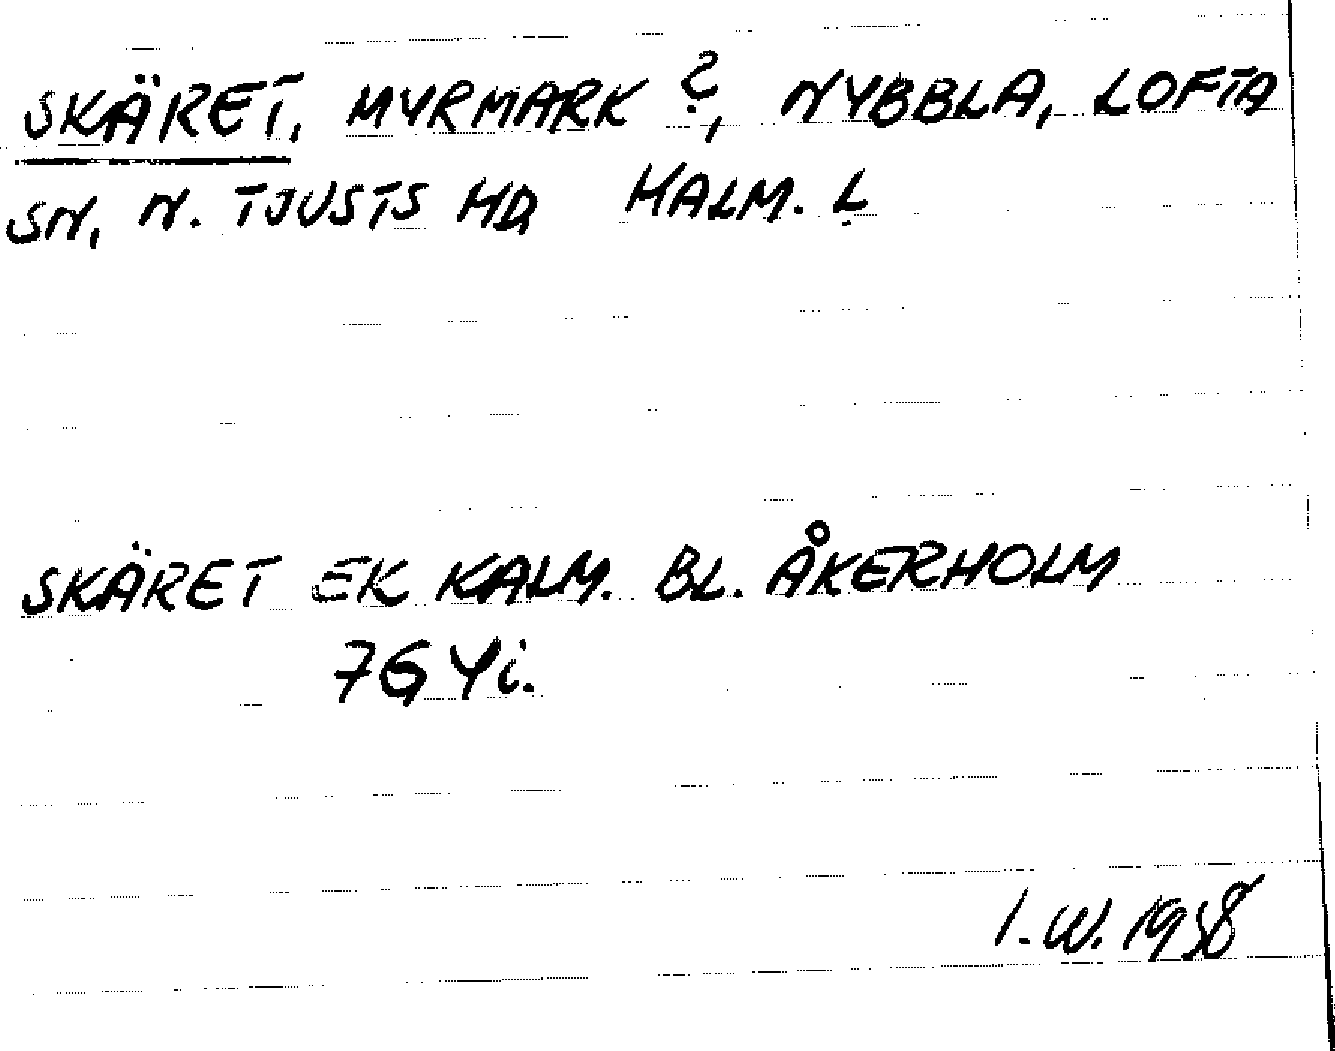 SKÄRET, MYRMARK ?, NYBBLA, LOFTA
SN, N. TJUSTS HD, KALM. L.
SKÄRET EK KALM. BL. ÅKERHOLM
7G 4i.
I.W. 1958